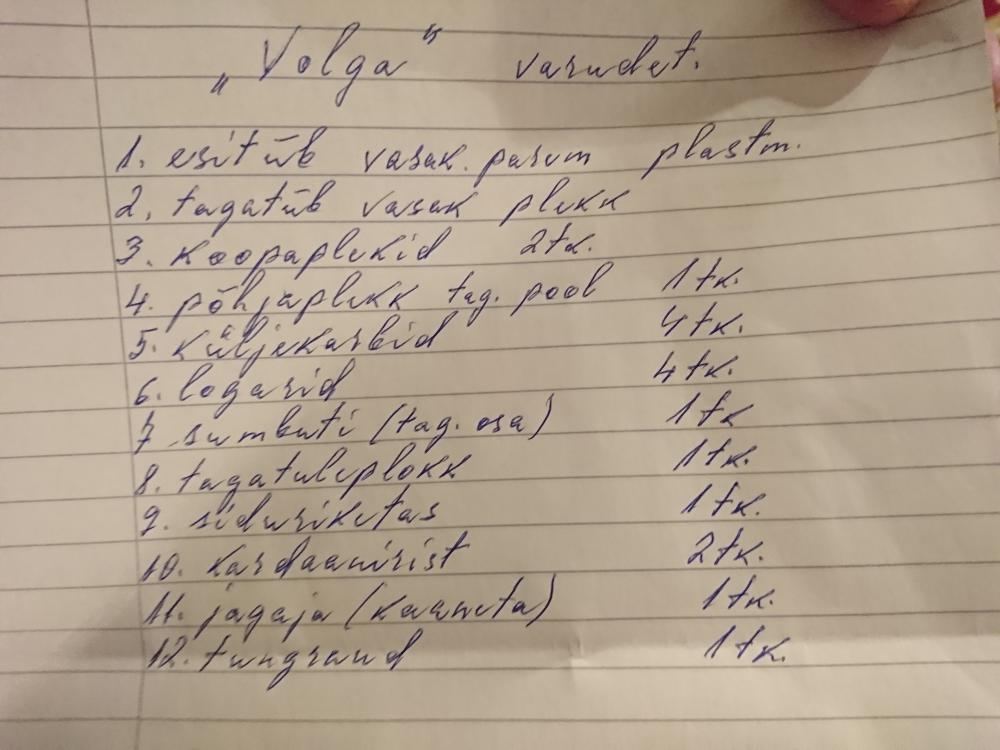 „Volga“ varudet.
1. esitiib vasak. parem plastm.
2. tagatiib vasak plekk
3. koopaplekid 2tk.
4. põhjaplekk tag. pool 1tk.
5. küljekarbid 4tk.
6. logarid 4tk.
7 summbuti (tag. osa) 1tk
8. tagatuleplokk 1tk.
9. siduriketas 1tk.
10. kardaanirist 2tk.
11. jagaja (kaaneta) 1tk.
12. tungraud 1tk.